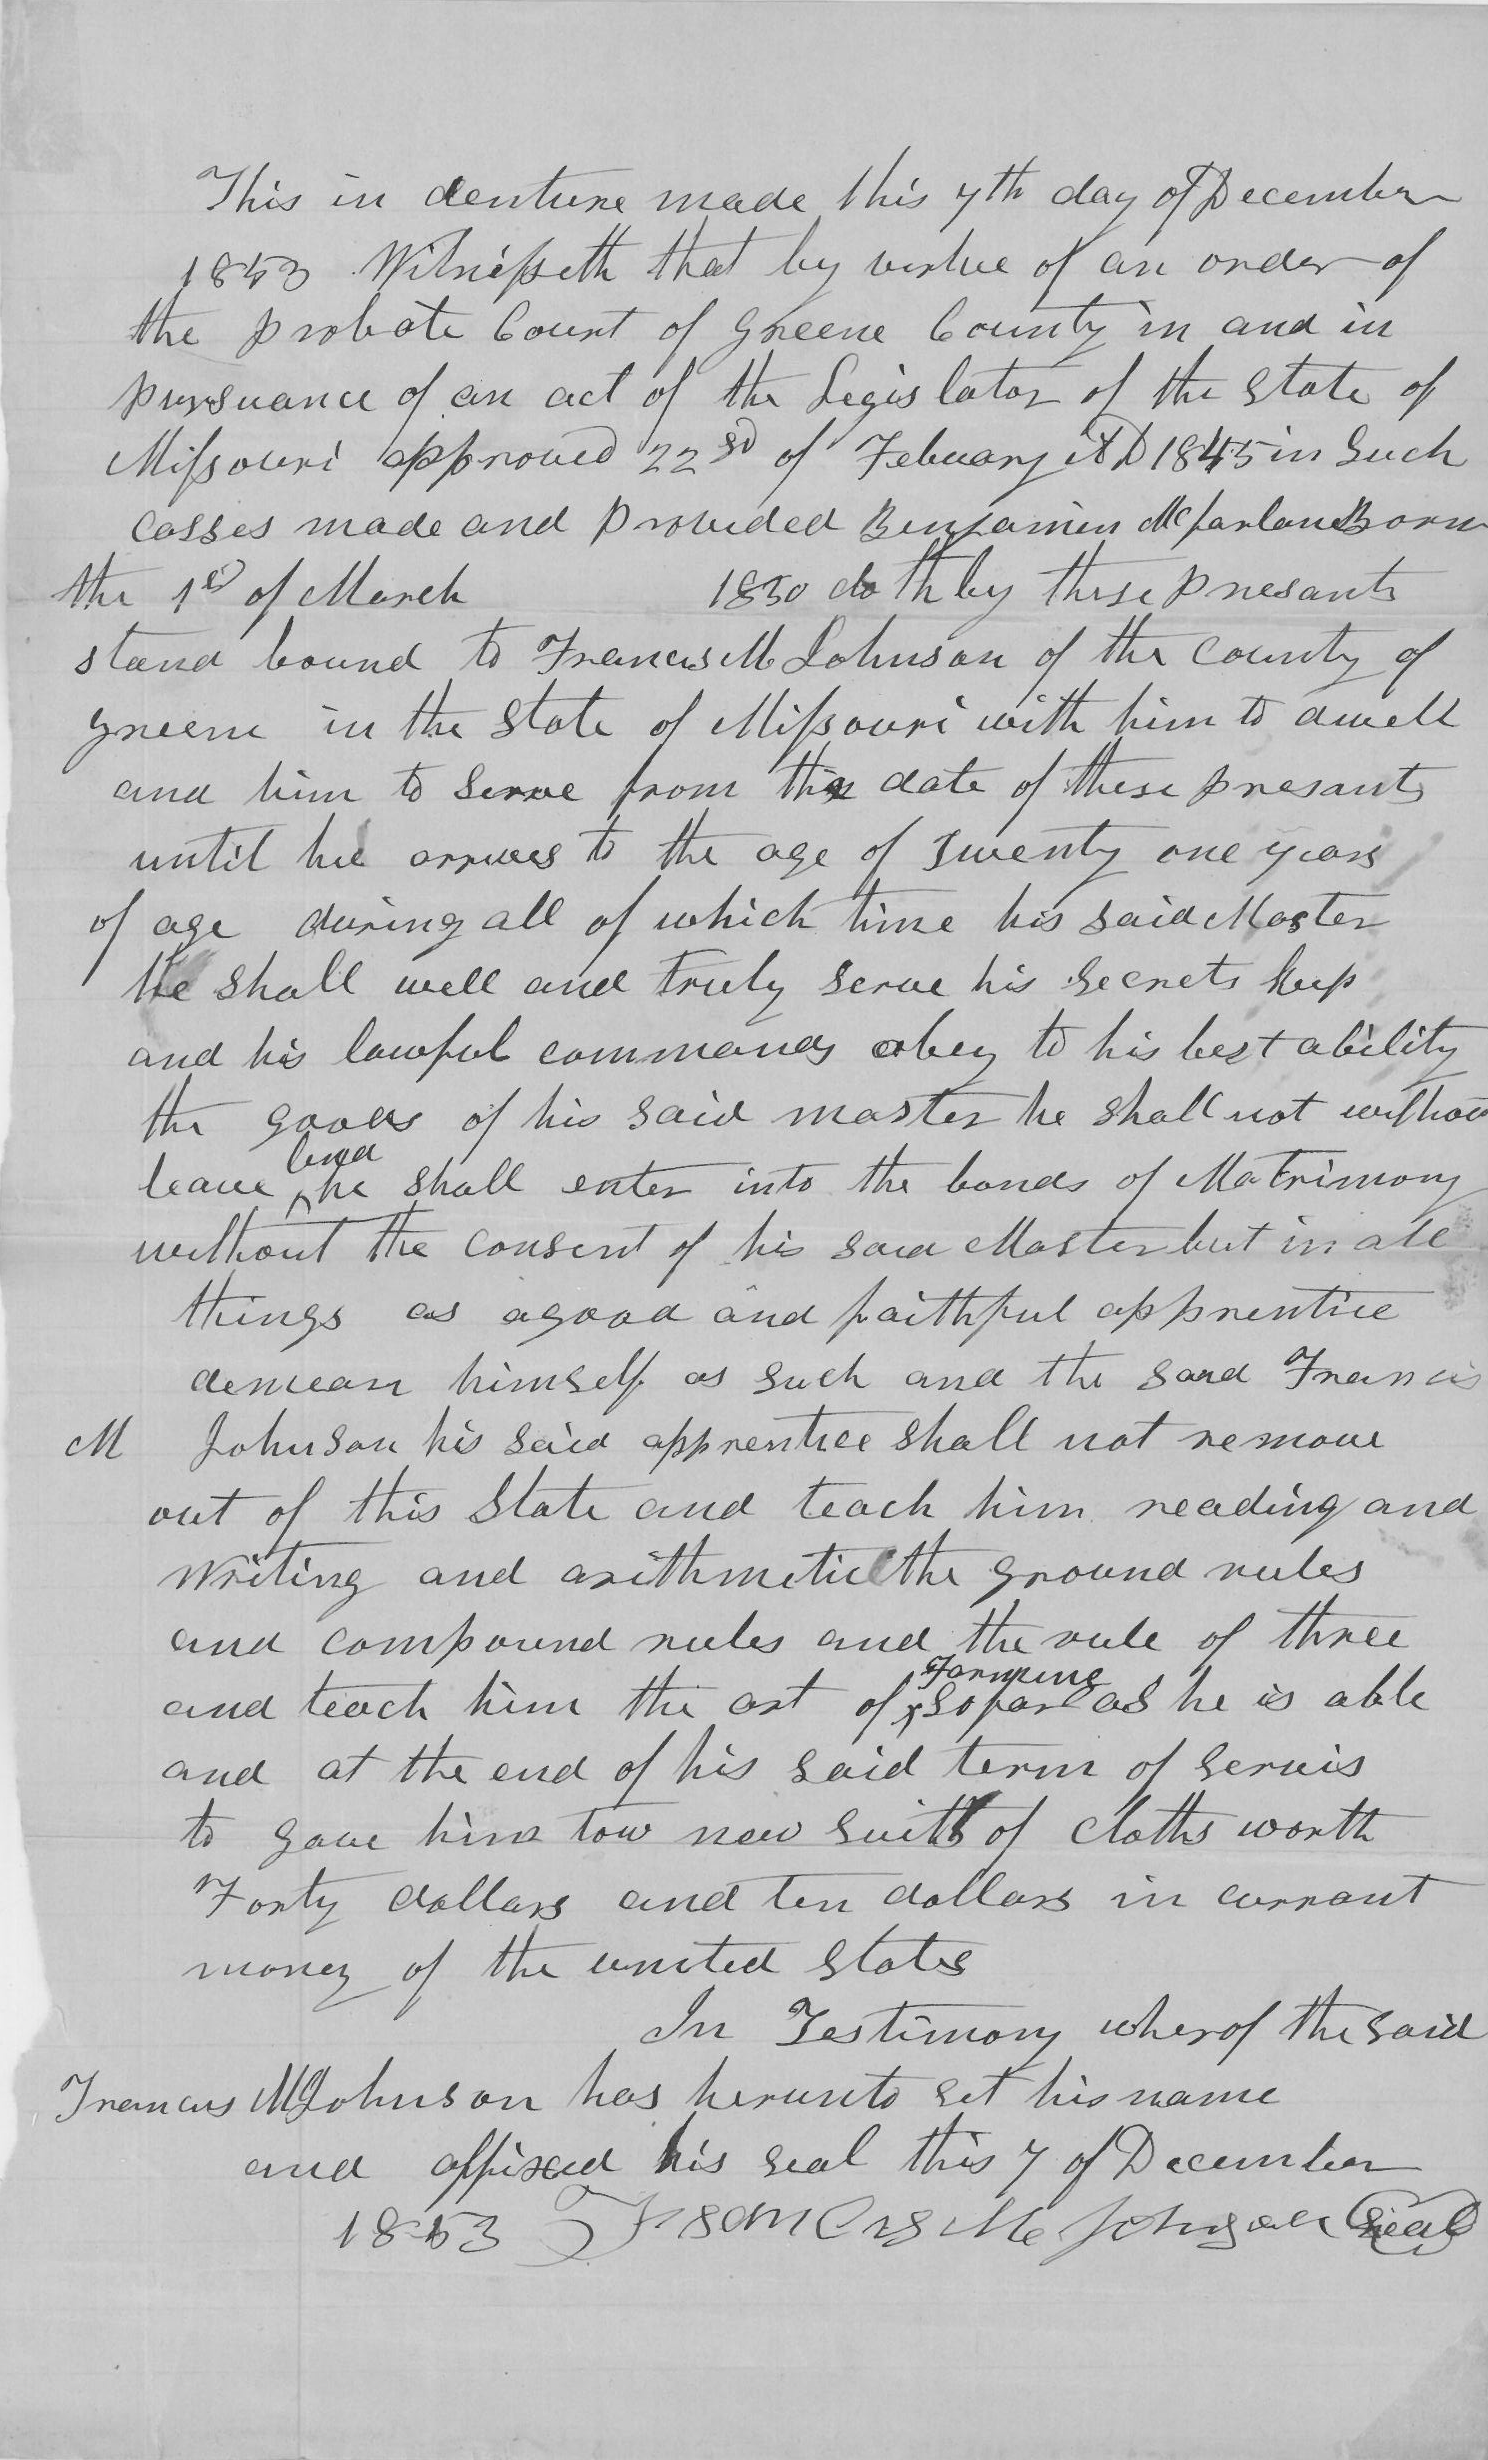 This in denture made this 7th day of December
1853 Witnesseth that by virtue of an order of
the probate Court of Greene County in and in
pursuance of an act of the Legislator of the State of
Missouri approved 22nd of Febuary AD 1845 in Such
casses made and provided Benjamin McfarlandBorn
the 1st of March 1850 doth by these presants
stand bound to Francis M Johnson of the County of
Greene in the State of Missouri with him to dwell
and him to serve from the date of these presants
until he arrives to the age of Twenty one years
of age during all of which time his said Master
he shall well and truly serve his secrets keep
and his lawful commands obey to his best ability
the goods of his said master he shall not without
lend
leave he shall enter into the bonds of Matrimony
without the consent of his said Master but in all
things as agood and faithful apprentice
demean himself as such and the said Francis
M Johnson his said apprentice shall not remove
out of this State and teach him reading and
writing and arithmetic the ground rules
and compound rules and the rule of three
Farming
and teach him the art of so far as he is able
and at the end of his said term of servis
to gave him tow new suits of cloths worth
Forty dollars and ten dollars in currant
money of the united States
In Testimony wherof the said
Francis M Johnson has herunto set his name
and affixed his seal this 7 of December
1853 Francis M Johnson Seal